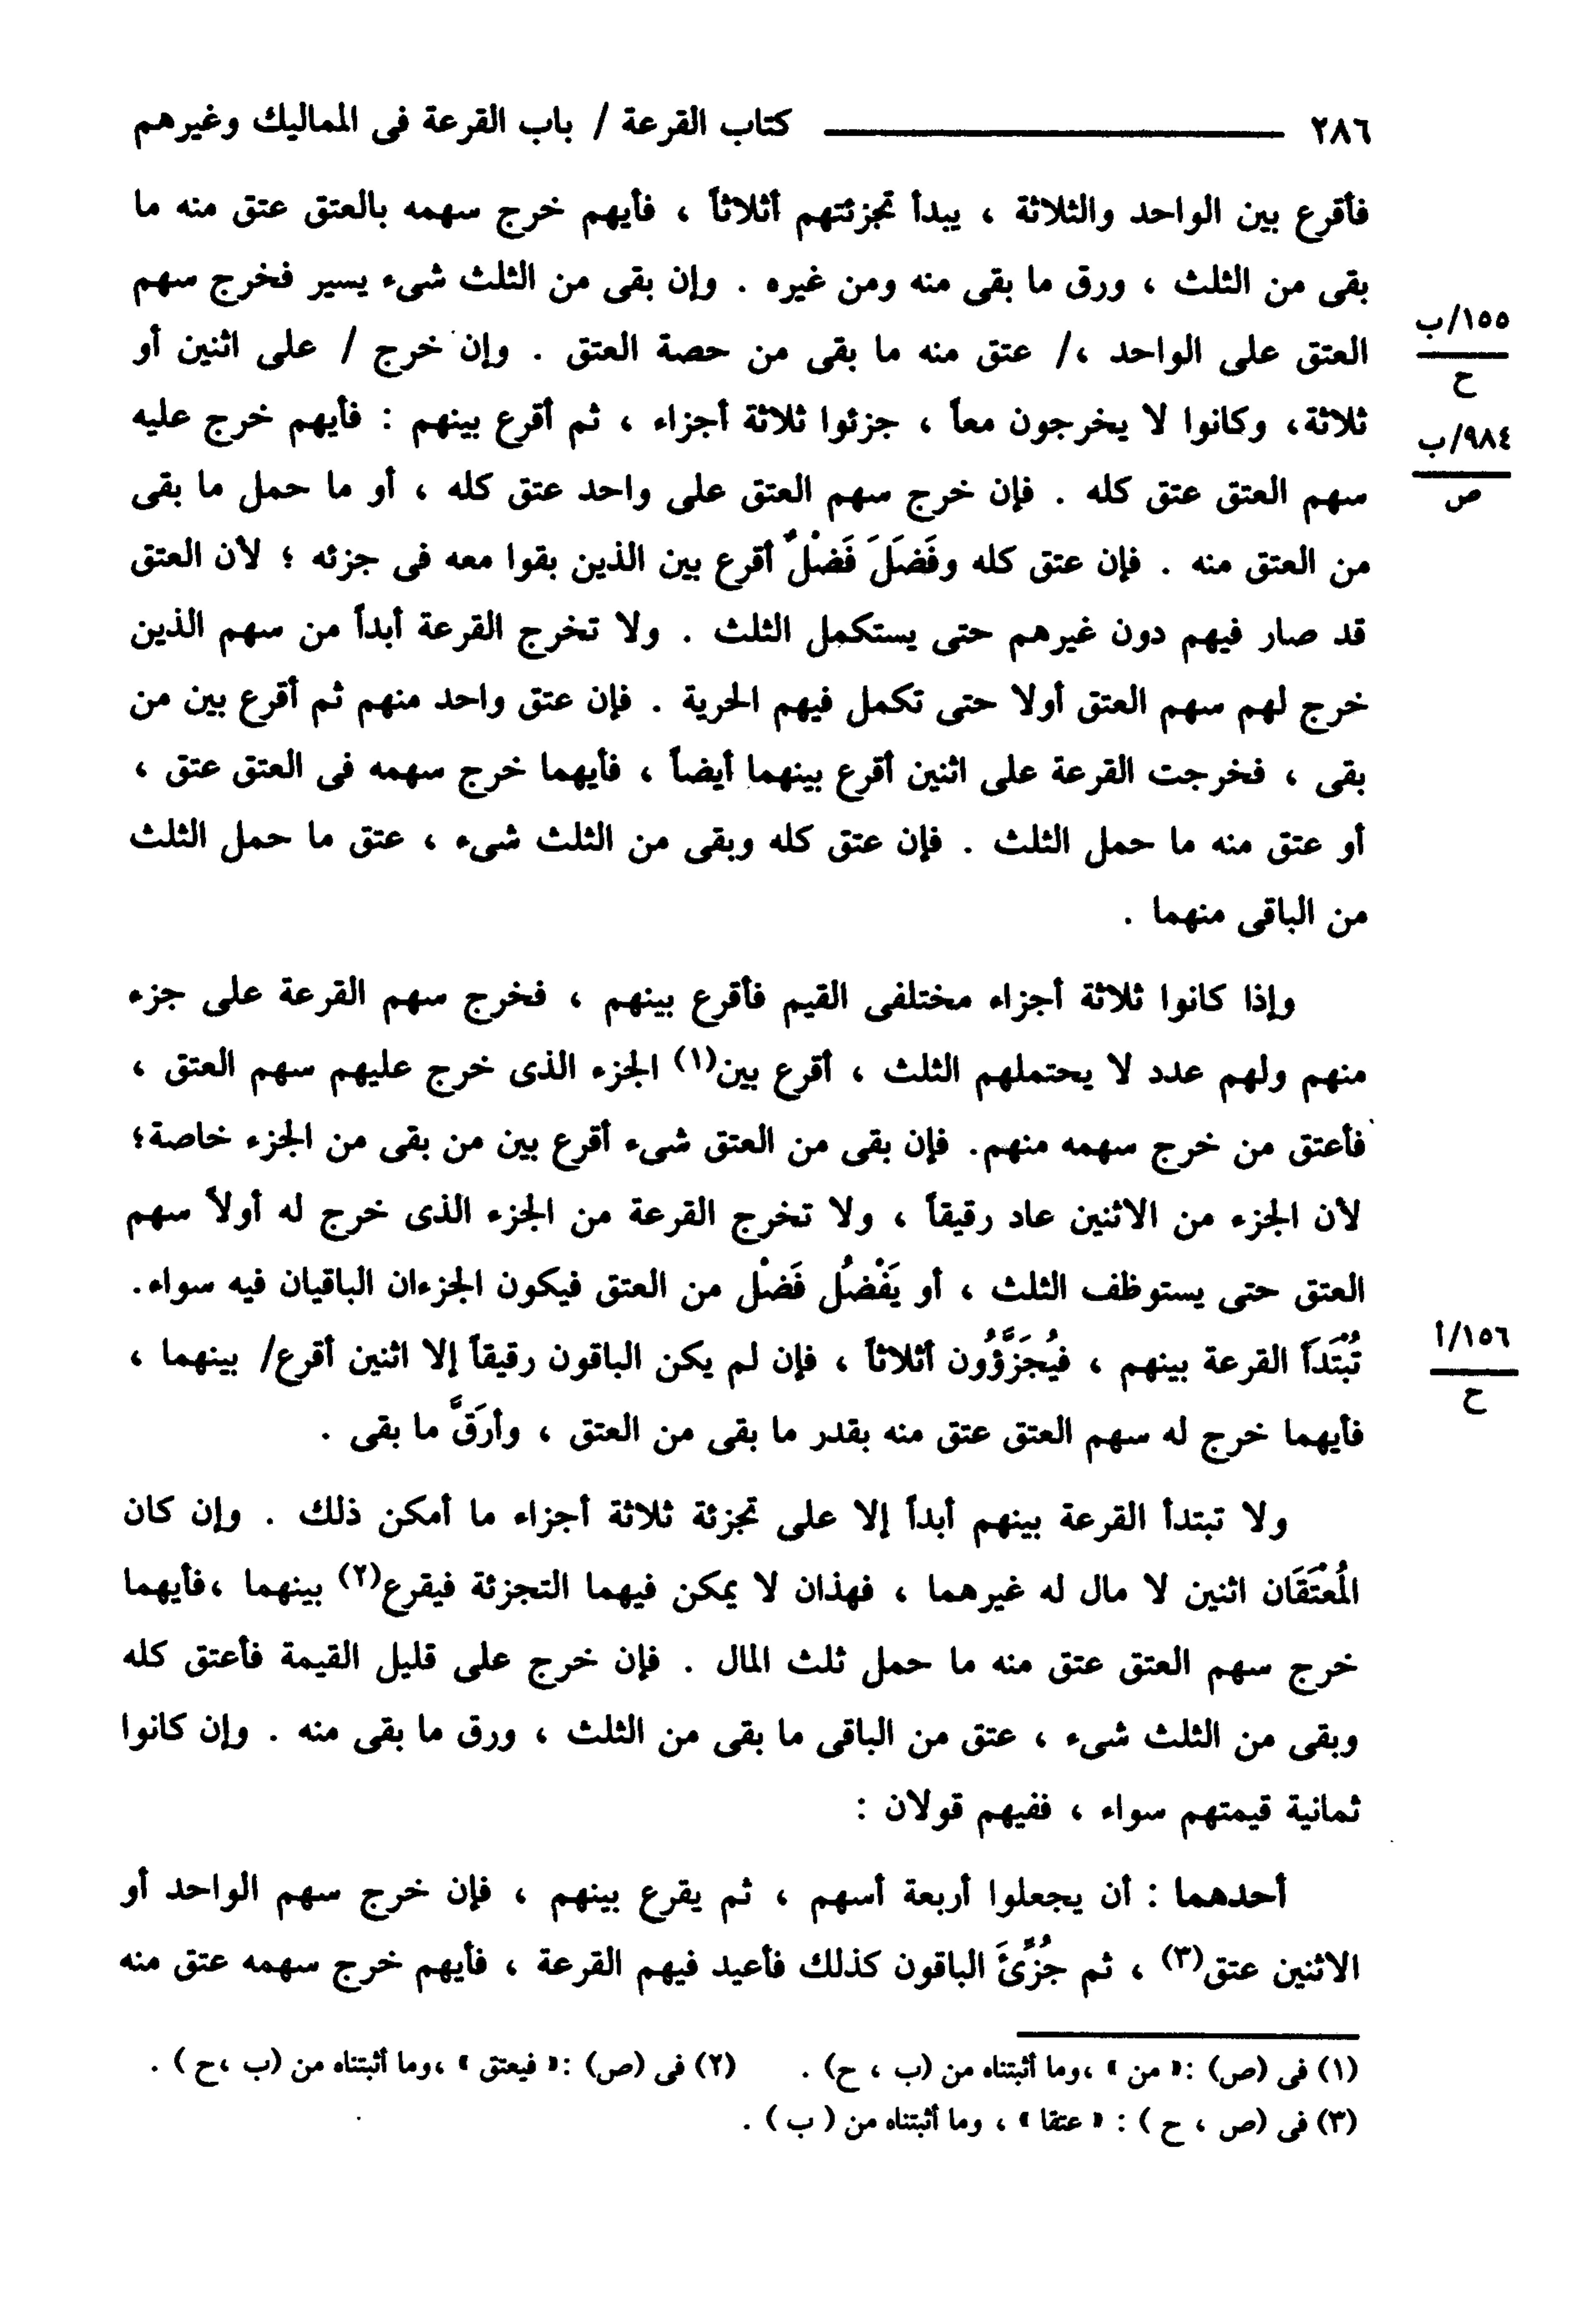 ٢٨٦ ــــــــــــــــــــــــ كتاب القرعة / باب القرعة فى المماليك وغيرهم
فأقرع بين الواحد والثلاثة ، يبدأ تجزئتهم أثلاثاً ، فأيهم خرج سهمه بالعتق عتق منه ما
بقى من الثلث ، ورق ما بقى منه ومن غيره . وإن بقى من الثلث شىء يسير فخرج سهم
١٥٥/ب
ح
العتق على الواحد ،/ عتق منه ما بقى من حصة العتق . وإن خرج / على اثنين أو
ثلاثة، وكانوا لا يخرجون معاً ، جزئوا ثلاثة أجزاء ، ثم أقرع بينهم : فأيهم خرج عليه
٩٨٤/ب
ص
سهم العتق عتق كله . فإن خرج سهم العتق على واحد عتق كله ، أو ما حمل ما بقى
من العتق منه . فإن عتق كله وفَضَلَ فَضْلٌ أقرع بين الذين بقوا معه فى جزئه ؛ لأن العتق
قد صار فيهم دون غيرهم حتى يستكمل الثلث . ولا تخرج القرعة أبداً من سهم الذين
خرج لهم سهم العتق أولا حتى تكمل فيهم الحرية . فإن عتق واحد منهم ثم أقرع بين من
بقى ، فخرجت القرعة على اثنين أقرع بينهما أيضاً ، فأيهما خرج سهمه فى العتق عتق ،
أو عتق منه ما حمل الثلث . فإن عتق كله وبقى من الثلث شىء ، عتق ما حمل الثلث
من الباقى منهما .
وإذا كانوا ثلاثة أجزاء مختلفى القيم فأقرع بينهم ، فخرج سهم القرعة على جزء
منهم ولهم عدد لا يحتملهم الثلث ، أقرع بين(١) الجزء الذى خرج عليهم سهم العتق ،
فأعتق من خرج سهمه منهم. فإن بقى من العتق شىء أقرع بين من بقى من الجزء خاصة؛
لأن الجزء من الاثنين عاد رقيقاً ، ولا تخرج القرعة من الجزء الذى خرج له أولاً سهم
العتق حتى يستوظف الثلث ، أو يَفْضُل فَضْل من العتق فيكون الجزءان الباقيان فيه سواء.
تُبْتَدَأ القرعة بينهم ، فيُجَزَّؤُون أثلاثاً ، فإن لم يكن الباقون رقيقاً إلا اثنين أقرع/ بينهما ،
١٥٦/أ
ح
فأيهما خرج له سهم العتق عتق منه بقدر ما بقى من العتق ، وأرَقَّ ما بقى .
ولا تبتدأ القرعة بينهم أبداً إلا على تجزئة ثلاثة أجزاء ما أمكن ذلك . وإن كان
المُعتَقَان اثنين لا مال له غيرهما ، فهذان لا يمكن فيهما التجزئة فيقرع(٢) بينهما ،فأيهما
خرج سهم العتق عتق منه ما حمل ثلث المال . فإن خرج على قليل القيمة فأعتق كله
وبقى من الثلث شىء ، عتق من الباقى ما بقى من الثلث ، ورق ما بقى منه . وإن كانوا
ثمانية قيمتهم سواء ، ففيهم قولان :
أحدهما : أن يجعلوا أربعة أسهم ، ثم يقرع بينهم ، فإن خرج سهم الواحد أو
الاثنين عتق(٣) ، ثم جُزِّئَ الباقون كذلك فأعيد فيهم القرعة ، فأيهم خرج سهمه عتق منه
(١) فى (ص) :« من » ،وما أثبتناه من (ب ، ح) . (٢) فى (ص) :« فيعتق » ،وما أثبتناه من (ب ،ح ) .
(٣) فى (ص ، ح ) : « عتقا » ، وما أثبتناه من ( ب ) .